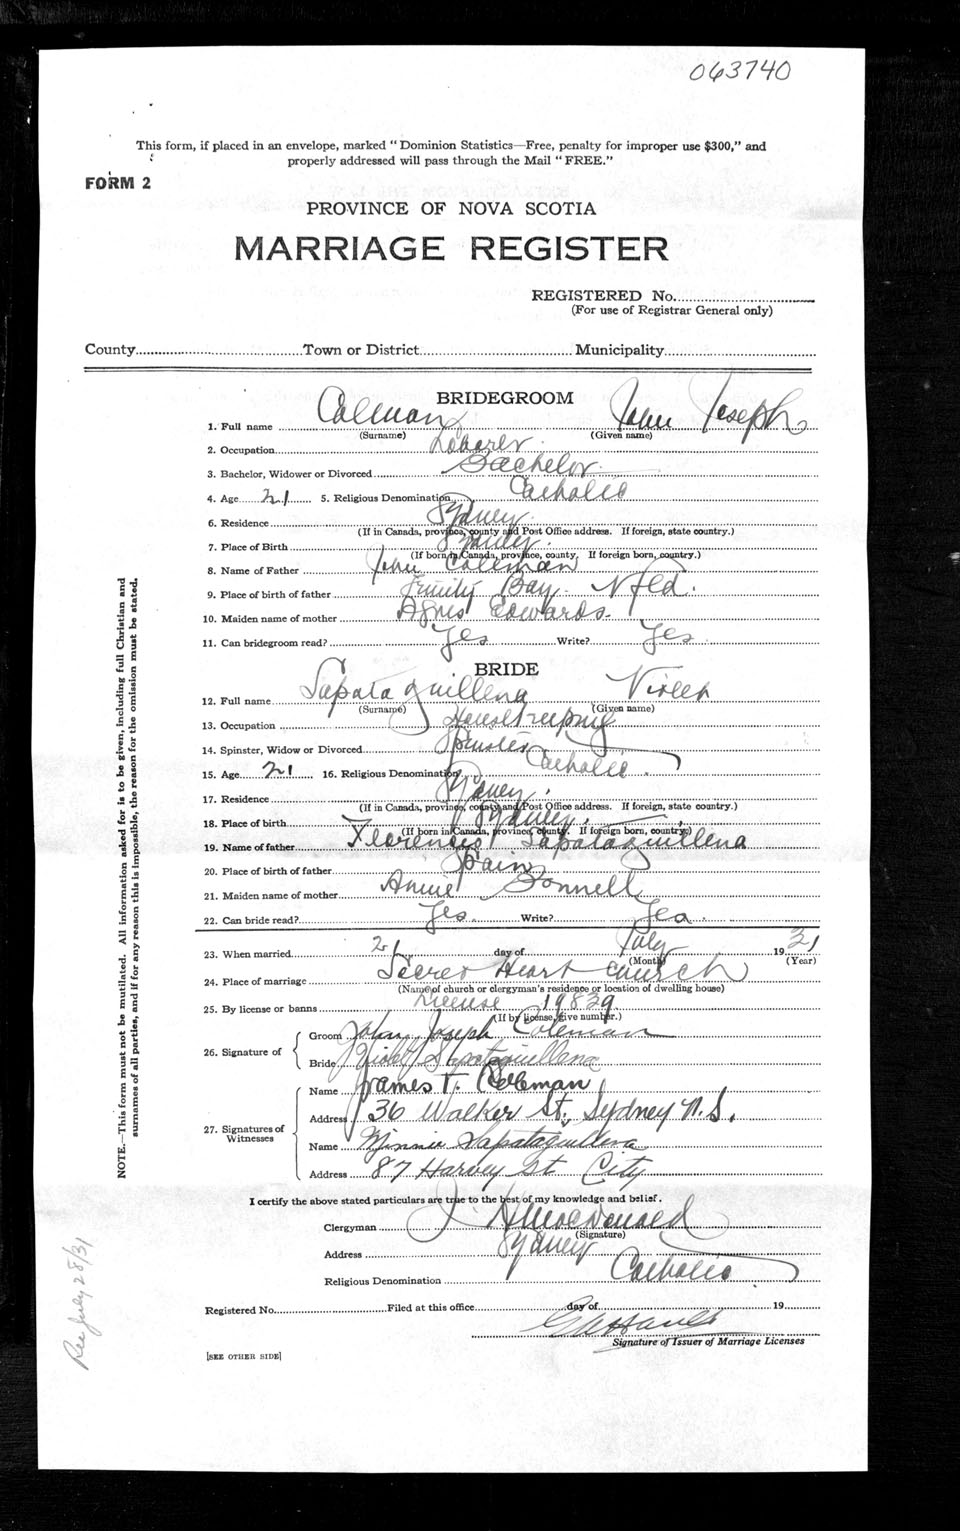 063740
This form, if placed in an envelope, marked "Dominion Statistics—Free, penalty for improper use $300," and
properly addressed will pass through the Mail "FREE."
FORM 2
PROVINCE OF NOVA SCOTIA
MARRIAGE REGISTER
REGISTERED No.
(For use of Registrar General only)
County Town or District Municipality
BRIDEGROOM
1. Full name Colman John Joseph
(Surname) (Given name)
2. Occupation Laborer
3. Bachelor, Widower or Divorced Bachelor
4. Age 21 5. Religious Denomination Catholic
6. Residence Sydney
(If in Canada, province, county and Post Office address. If foreign, state country.)
7. Place of Birth Sydney
(If born in Canada, province, county. If foreign born, country.)
8. Name of Father John Coleman
9. Place of birth of father Trinity Bay Nfld.
10. Maiden name of mother Agnes Edwards
11. Can bridegroom read? Yes Write? Yes
BRIDE
12. Full name Sapataguillena Violet
(Surname) (Given name)
13. Occupation Housekeeping
14. Spinster, Widow or Divorced Spinster
15. Age 21 16. Religious Denomination Catholic
17. Residence Sydney
(If in Canada, province, county and Post Office address. If foreign, state country.)
18. Place of birth Sydney
(If born in Canada, province, county. If foreign born, country.)
19. Name of father Florences Sapataguillena
20. Place of birth of father Spain
21. Maiden name of mother Annie Donnell
22. Can bride read? Yes Write? Yes
23. When married 21 day of July 1931
(Month) (Year)
24. Place of marriage Sacred Heart Church
(Name of church or clergyman's residence or location of dwelling house)
25. By license or banns License 19839
(If by license, give number.)
26. Signature of Groom John Joseph Coleman
Bride Violet Sapataguillena
27. Signatures of Witnesses Name James T. Coleman
Address 36 Walker St., Sydney N.S.
Name Minnie Sapataguillena
Address 87 Harvey St City
I certify the above stated particulars are true to the best of my knowledge and belief.
Clergyman J. H. MacDonald
(Signature)
Address Sydney
Religious Denomination Catholic
Registered No. Filed at this office day of 19
Signature of Issuer of Marriage Licenses
[SEE OTHER SIDE]
NOTE.—This form must not be mutilated. All information asked for is to be given, including full Christian and
surnames of all parties, and if for any reason this is impossible, the reason for the omission must be stated.
Rec July 28/31